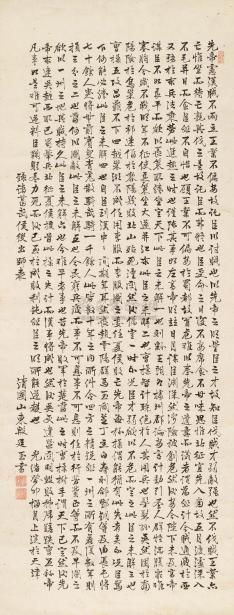 先帝慮漢賊不兩立王業不偏安故託臣以討賊也以先帝之明量臣之才故知臣伐賊才弱敵彊也然不伐賊王業亦
亡惟坐而待亡孰與伐之是故託臣而弗疑也臣受命之日寢不安席食不甘味思惟北征宜先入南故五月渡瀘深入
不毛并日而食臣非不自惜也顧王業不可偏安於蜀都故冒危難以奉先帝之遺意而議者謂為非計今賊適疲於西
又務於東兵法乘勞此進趨之時也謹陳其事如左高帝明並日月謀臣淵深然涉險被創危然後安今陛下未及高帝
謀臣不如良平而欲以長計取勝坐定天下此臣之未解一也劉繇王朗各據州郡論安言計動引聖人群疑滿腹眾難
塞胸今歲不戰明年不征使孫策坐大遂并江東此臣之未解二也曹操智計殊絕於人其用兵也髣髴孫吳然困於南
陽險於烏巢危於祁連偪於黎陽幾敗北山殆死潼關然後偽定一時耳況臣才弱而欲以不危而定之此臣之未解三也
曹操五攻昌霸不下四越巢湖不成任用李服而李服圖之委任夏侯而夏侯敗亡先帝每稱操為能猶有此失況臣駑
下何能必勝此臣之未解四也自臣到漢中中間朞年耳然喪趙雲陽群馬玉閻芝丁立白壽劉郃鄧銅等及曲長屯將
七十餘人突將無前賨叟青羌散騎武騎一千餘人此皆數十年之內所糾合四方之精銳非一州之所有若復數年則
損三分之二也當何以圖敵此臣之未解五也今民窮兵疲而事不可息事不可息則住與行勞費正等而不及早圖之
欲以一州之地與賊持久此臣之未解六也夫難平者事也昔先帝敗軍於楚當此時曹操拊手謂天下已定然後先
帝東連吳越西取巴蜀舉兵北征夏侯授首此操之失計而漢事將成也然後吳更違盟關羽毀敗秭歸蹉跌曹丕稱帝
凡事如是難可逆料臣鞠躬盡力死而後已至於成敗利鈍非臣之明所能逆覩也
諸葛武侯後出師表 光緒癸卯梅月上浣於天津
清國山東殷廷玉書